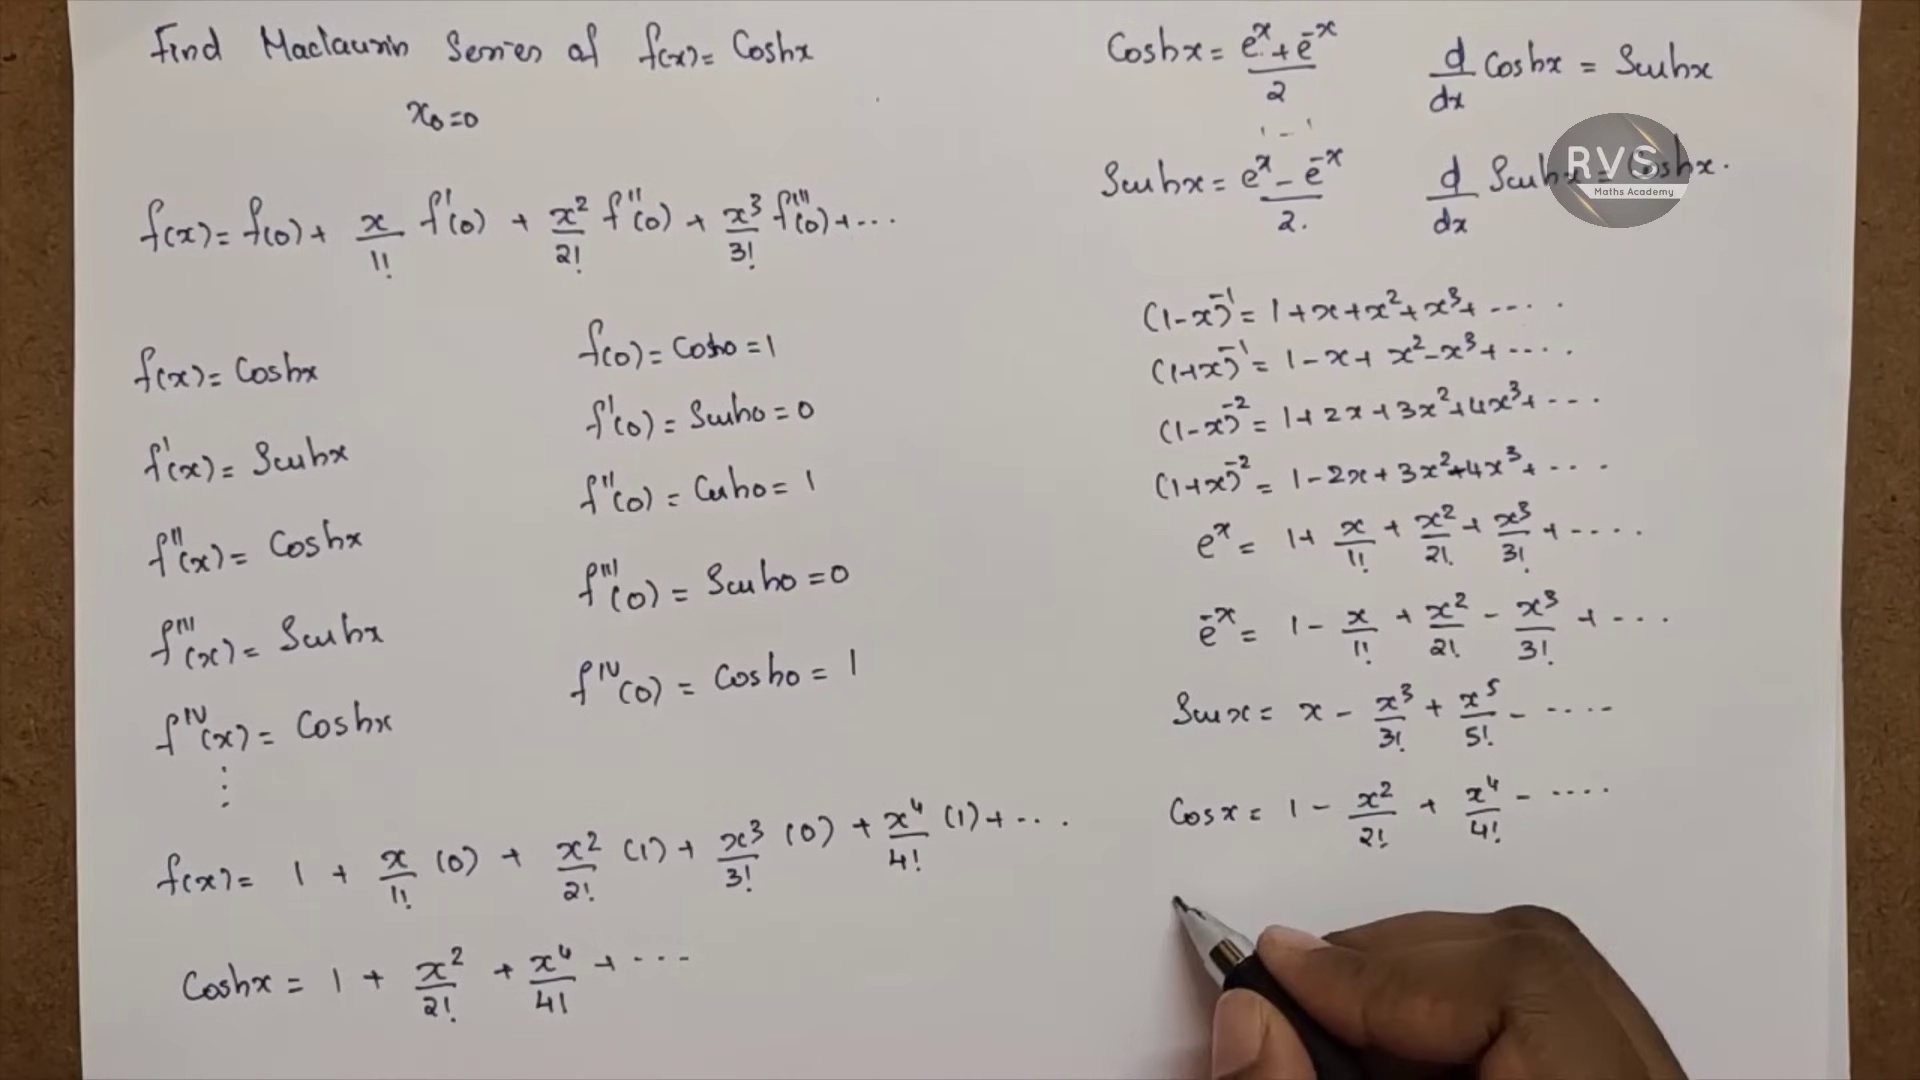 Find Maclaurin Series of f(x) = Coshx
x₀=0
f(x) = f(0) + x/1! f'(0) + x²/2! f''(0) + x³/3! f'''(0) + ...
f(x) = Coshx
f(0) = Cosh0 = 1
f'(x) = Sinhx
f'(0) = Sinh0 = 0
f''(x) = Coshx
f''(0) = Cosh0 = 1
f'''(x) = Sinhx
f'''(0) = Sinh0 = 0
f^IV(x) = Coshx
f^IV(0) = Cosh0 = 1
⋮
f(x) = 1 + x/1! (0) + x²/2! (1) + x³/3! (0) + x⁴/4! (1) + ...
Coshx = 1 + x²/2! + x⁴/4! + ...
Coshx = (e^x + e^-x)/2
d/dx Coshx = Sinhx
Sinhx = (e^x - e^-x)/2.
d/dx Sinhx = Coshx.
RVS
Maths Academy
(1-x)^-1 = 1 + x + x² + x³ + ....
(1+x)^-1 = 1 - x + x² - x³ + ....
(1-x)^-2 = 1 + 2x + 3x² + 4x³ + ...
(1+x)^-2 = 1 - 2x + 3x² - 4x³ + ...
e^x = 1 + x/1! + x²/2! + x³/3! + ....
e^-x = 1 - x/1! + x²/2! - x³/3! + ...
Sinx = x - x³/3! + x⁵/5! - ....
Cosx = 1 - x²/2! + x⁴/4! - ....